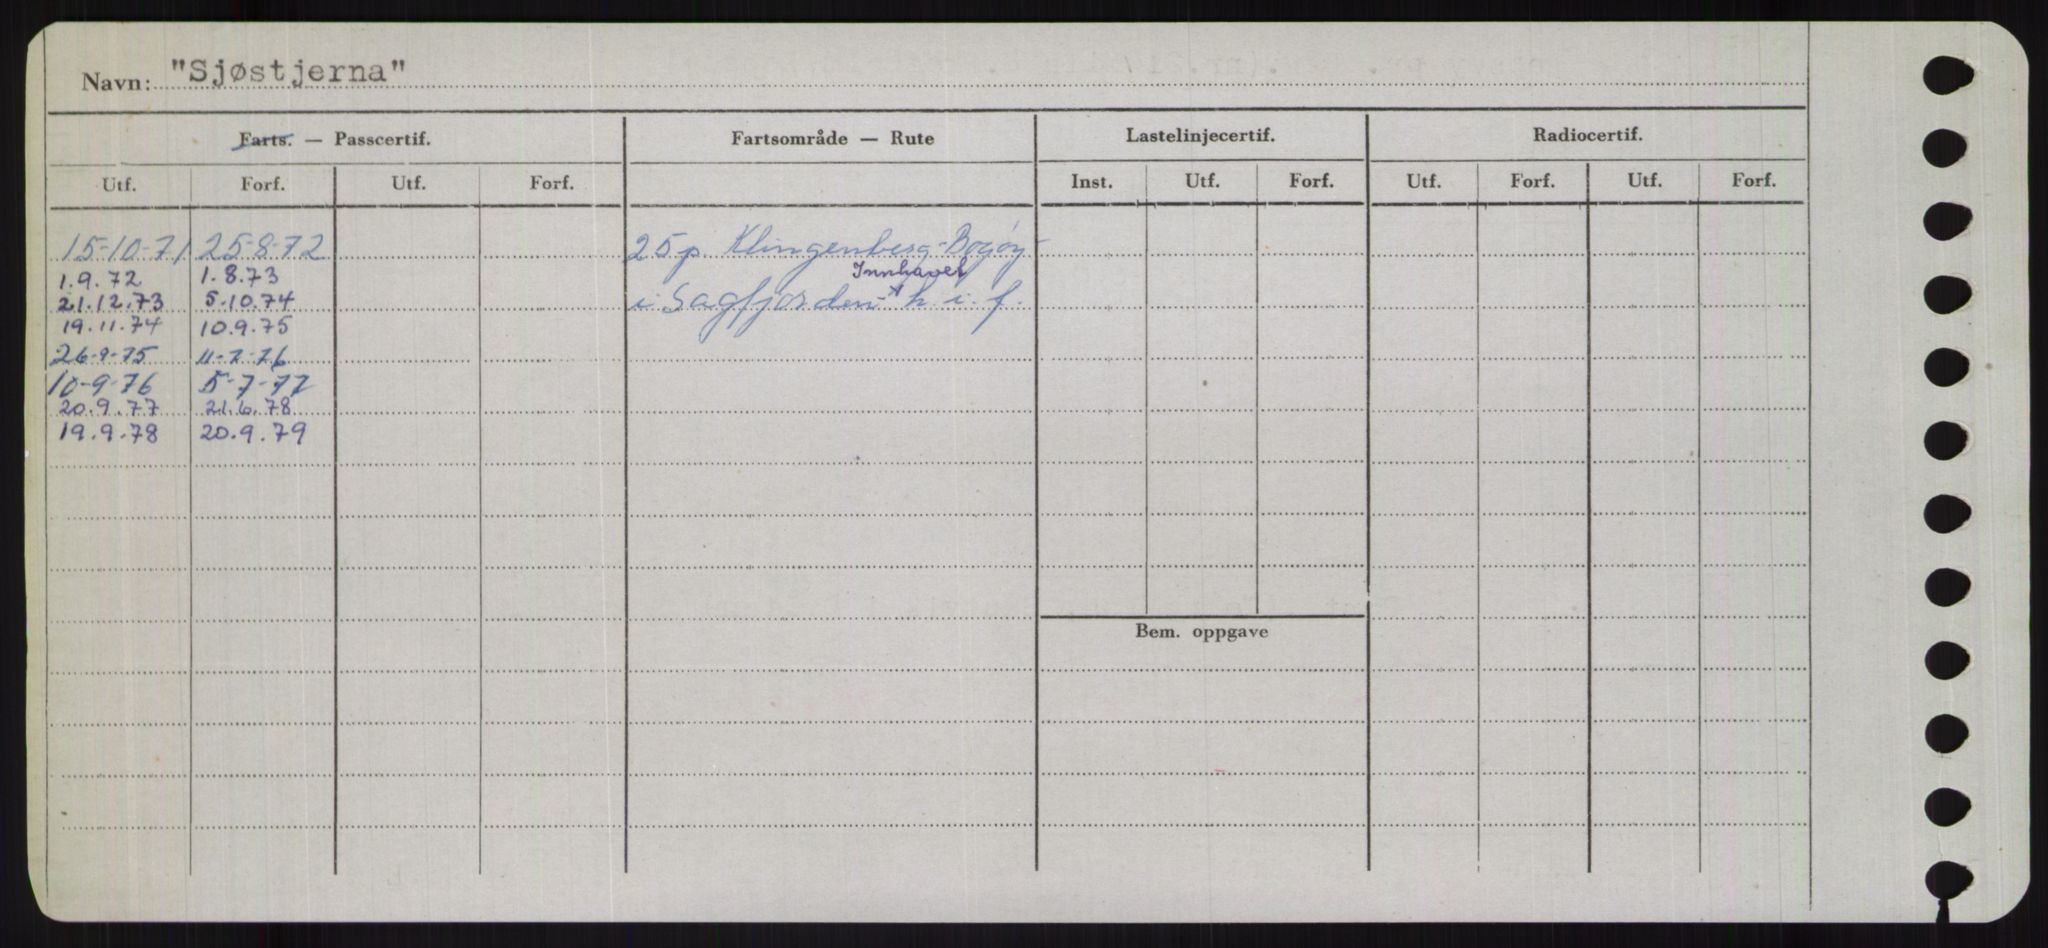 Navn: "Sjøstjerna"
Farts. — Passcertif. Fartsområde — Rute Lastelinjecertif. Radiocertif.
Utf. Forf. Utf. Forf. Inst. Utf. Forf. Utf. Forf. Utf. Forf.
15-10-71 25-8-72 25 p. Klingenberg-Bogøy-
1.9.72 1.8.73 Innhavet
21.12.73 5.10.74 i Sagfjorden- h. i. f.
19.11.74 10.9.75
26-9-75 11-7-76
10-9-76 5-7-77
20.9.77 21.6.78
19.9.78 20.9.79
Bem. oppgave